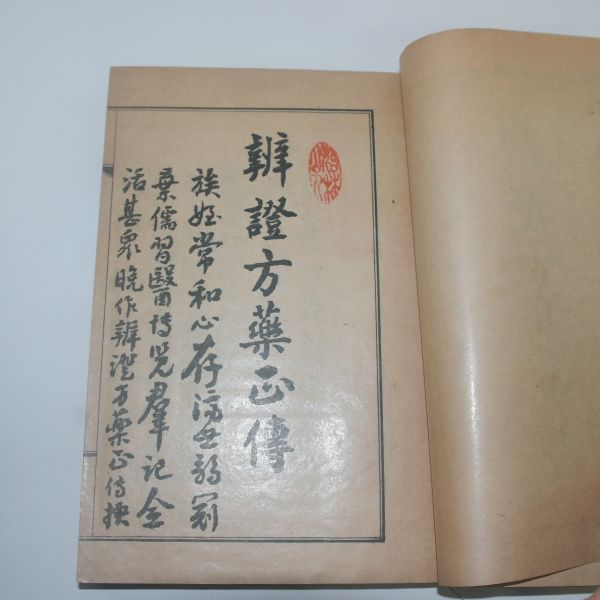 辨證方藥正傳
族姪常和心存濟世
棄儒習醫博覽羣記全
活甚衆晩作辨證方藥正傳